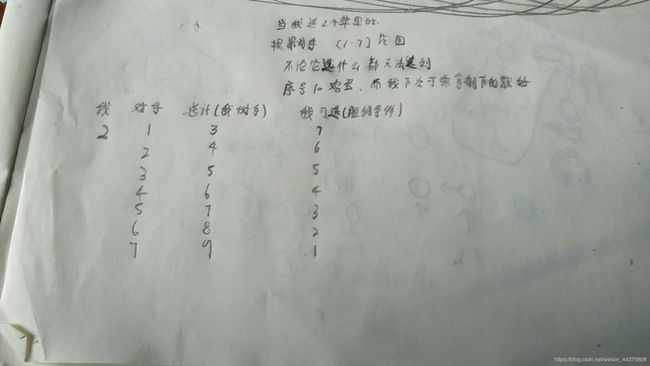 当我选2个苹果时
根据对手 [1-7] 范围
不论它选什么都无法选到
序号10 鸡蛋，而我下次可
我 对手 总计(我+对手) 我可选(胜利条件)
2 1 3 7
2 4 6
3 5 5
4 6 4
5 7 3
6 8 2
7 9 1
https://blog.csdn.net/weixin_44370808